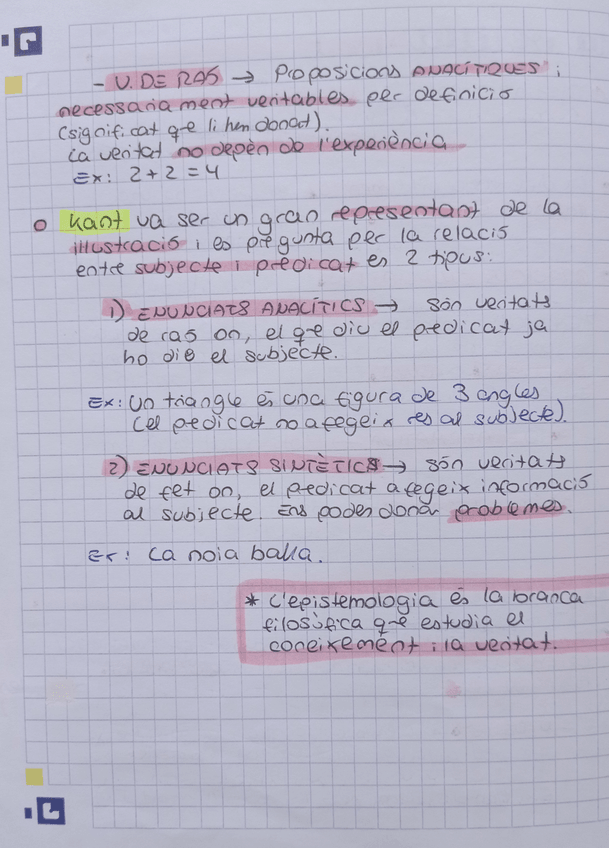 - V. DE RAÓ → Proposicions ANALÍTIQUES i
necessariament veritables per definició
(significat que li hem donat).
La veritat no depèn de l'experiència
Ex: 2+2=4
Kant va ser un gran representant de la
il·lustració i es pregunta per la relació
entre subjecte i predicat en 2 tipus:
1) ENUNCIATS ANALÍTICS → són veritats
de raó on, el que diu el predicat ja
ho diu el subjecte.
Ex: Un triangle és una figura de 3 angles
(el predicat no afegeix res al subjecte).
2) ENUNCIATS SINTÈTICS → són veritats
de fet on, el predicat afegeix informació
al subjecte. Ens poden donar problemes.
Ex: La noia balla.
* L'epistemologia és la branca
filosòfica que estudia el
coneixement i la veritat.